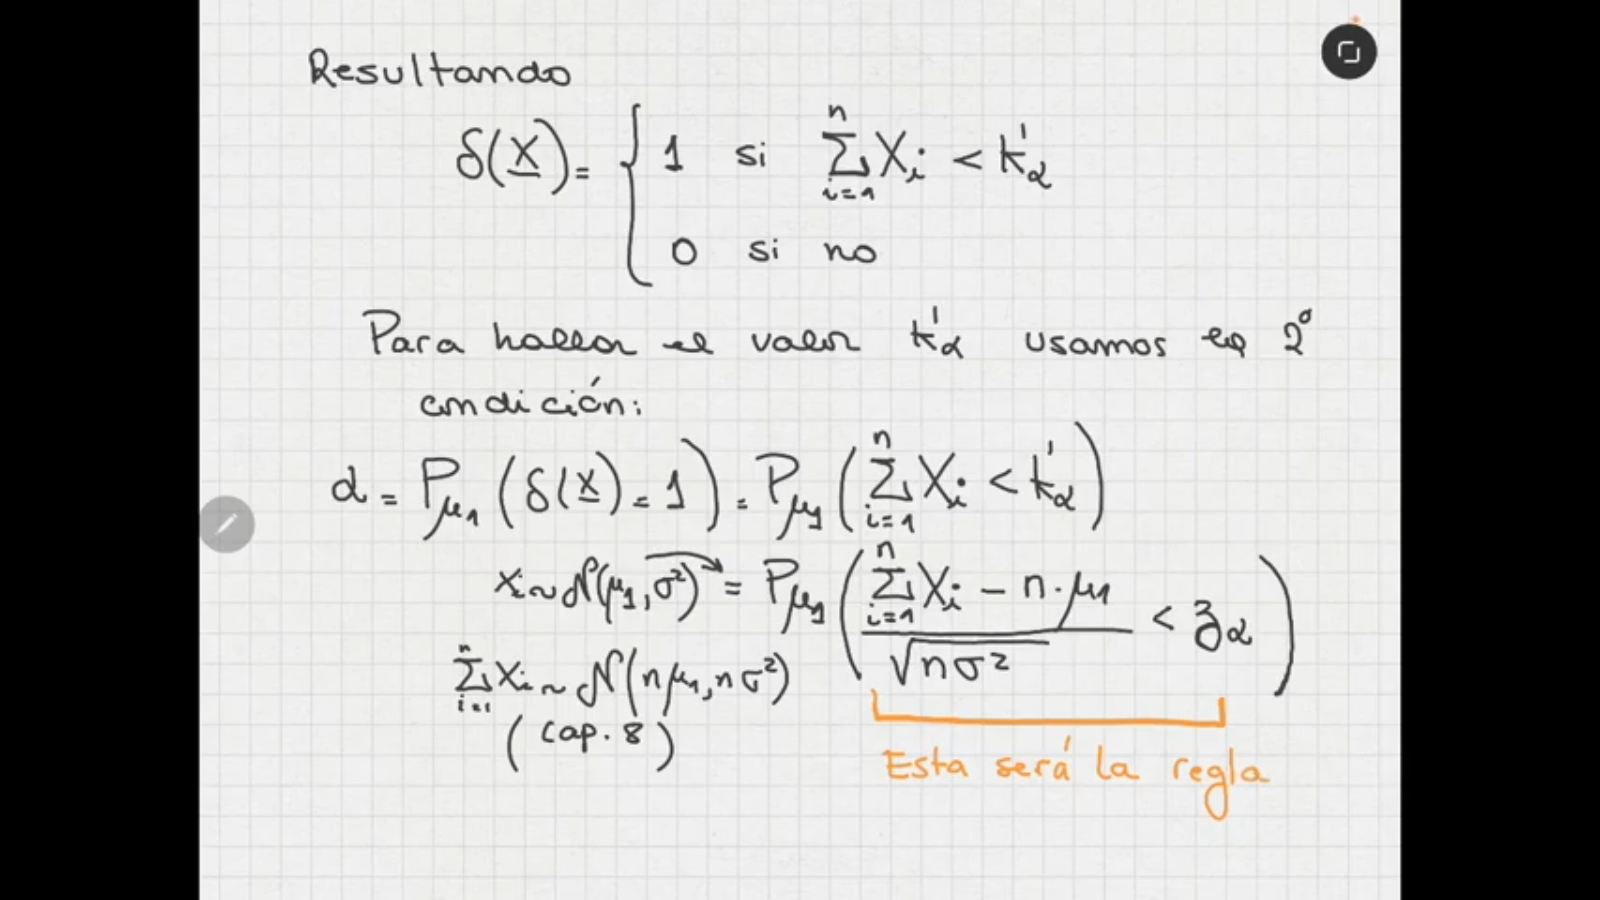 Resultando
δ(X) = { 1 si ∑_{i=1}^{n} X_i < k'_α
0 si no
Para hallar el valor k'_α usamos la 2ª
condición:
α = P_{μ_1} ( δ(X) = 1 ) = P_{μ_1} ( ∑_{i=1}^{n} X_i < k'_α )
X_i ~ N(μ_1, σ²) = P_{μ_1} ( (∑_{i=1}^{n} X_i − n · μ_1) / √(nσ²) < z_α )
∑_{i=1}^{n} X_i ~ N(nμ_1, nσ²)
(cap. 8)
Esta será la regla